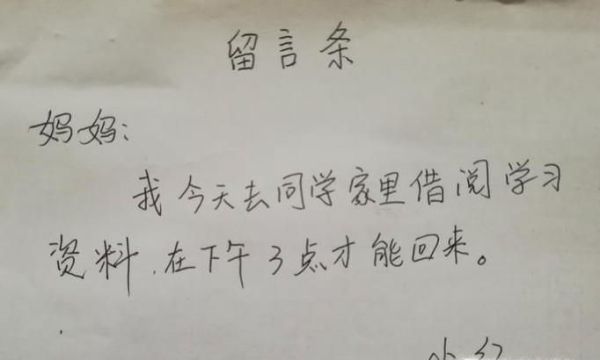 留言条
妈妈：
我今天去同学家里借阅学习
资料.在下午3点才能回来。